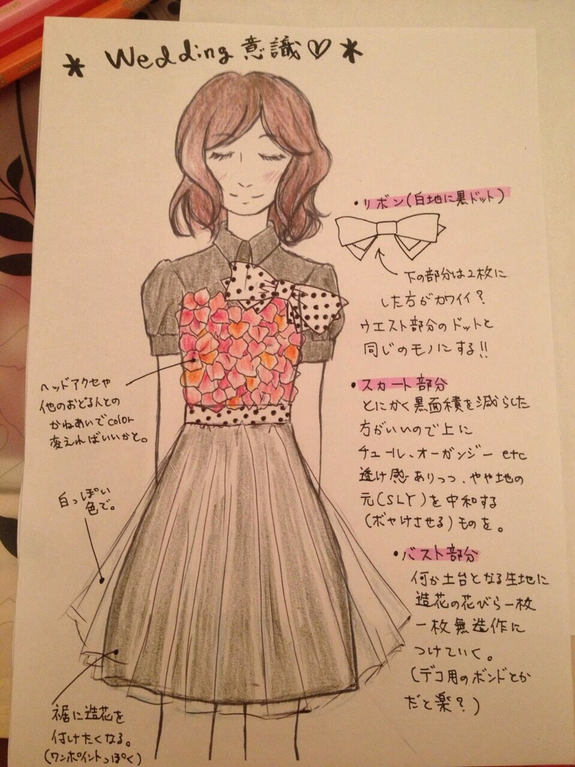 * Wedding 意識♡ *
・リボン(白地に黒ドット)
下の部分は2枚に
した方がカワイイ?
ウエスト部分のドットと
同じのモノにする!!
・スカート部分
とにかく黒面積を減らした
方がいいので上に
チュール、オーガンジー etc
透け感ありつつ、やや地の
元(SLY)を中和する
(ボヤけさせる)ものを。
・バスト部分
何か土台となる生地に
造花の花びら一枚
一枚無造作に
つけていく。
(デコ用のボンドとか
だと楽?)
ヘッドアクセや
他のおどる人との
かねあいでcolor
変えればいいかと。
白っぽい
色で。
裾に造花を
付けたくなる。
(ワンポイントっぽく)